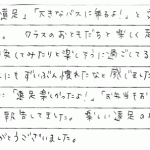 遠足」「大きなバスに乗るよ！」と
。クラスのおともだちと楽しく
てみたりと楽しそうに過ごして
にもずいぶん慣れたなと感じました
「遠足楽しかったよ！」「お弁当もお
報告してました。楽しい遠足の
がとうございました。